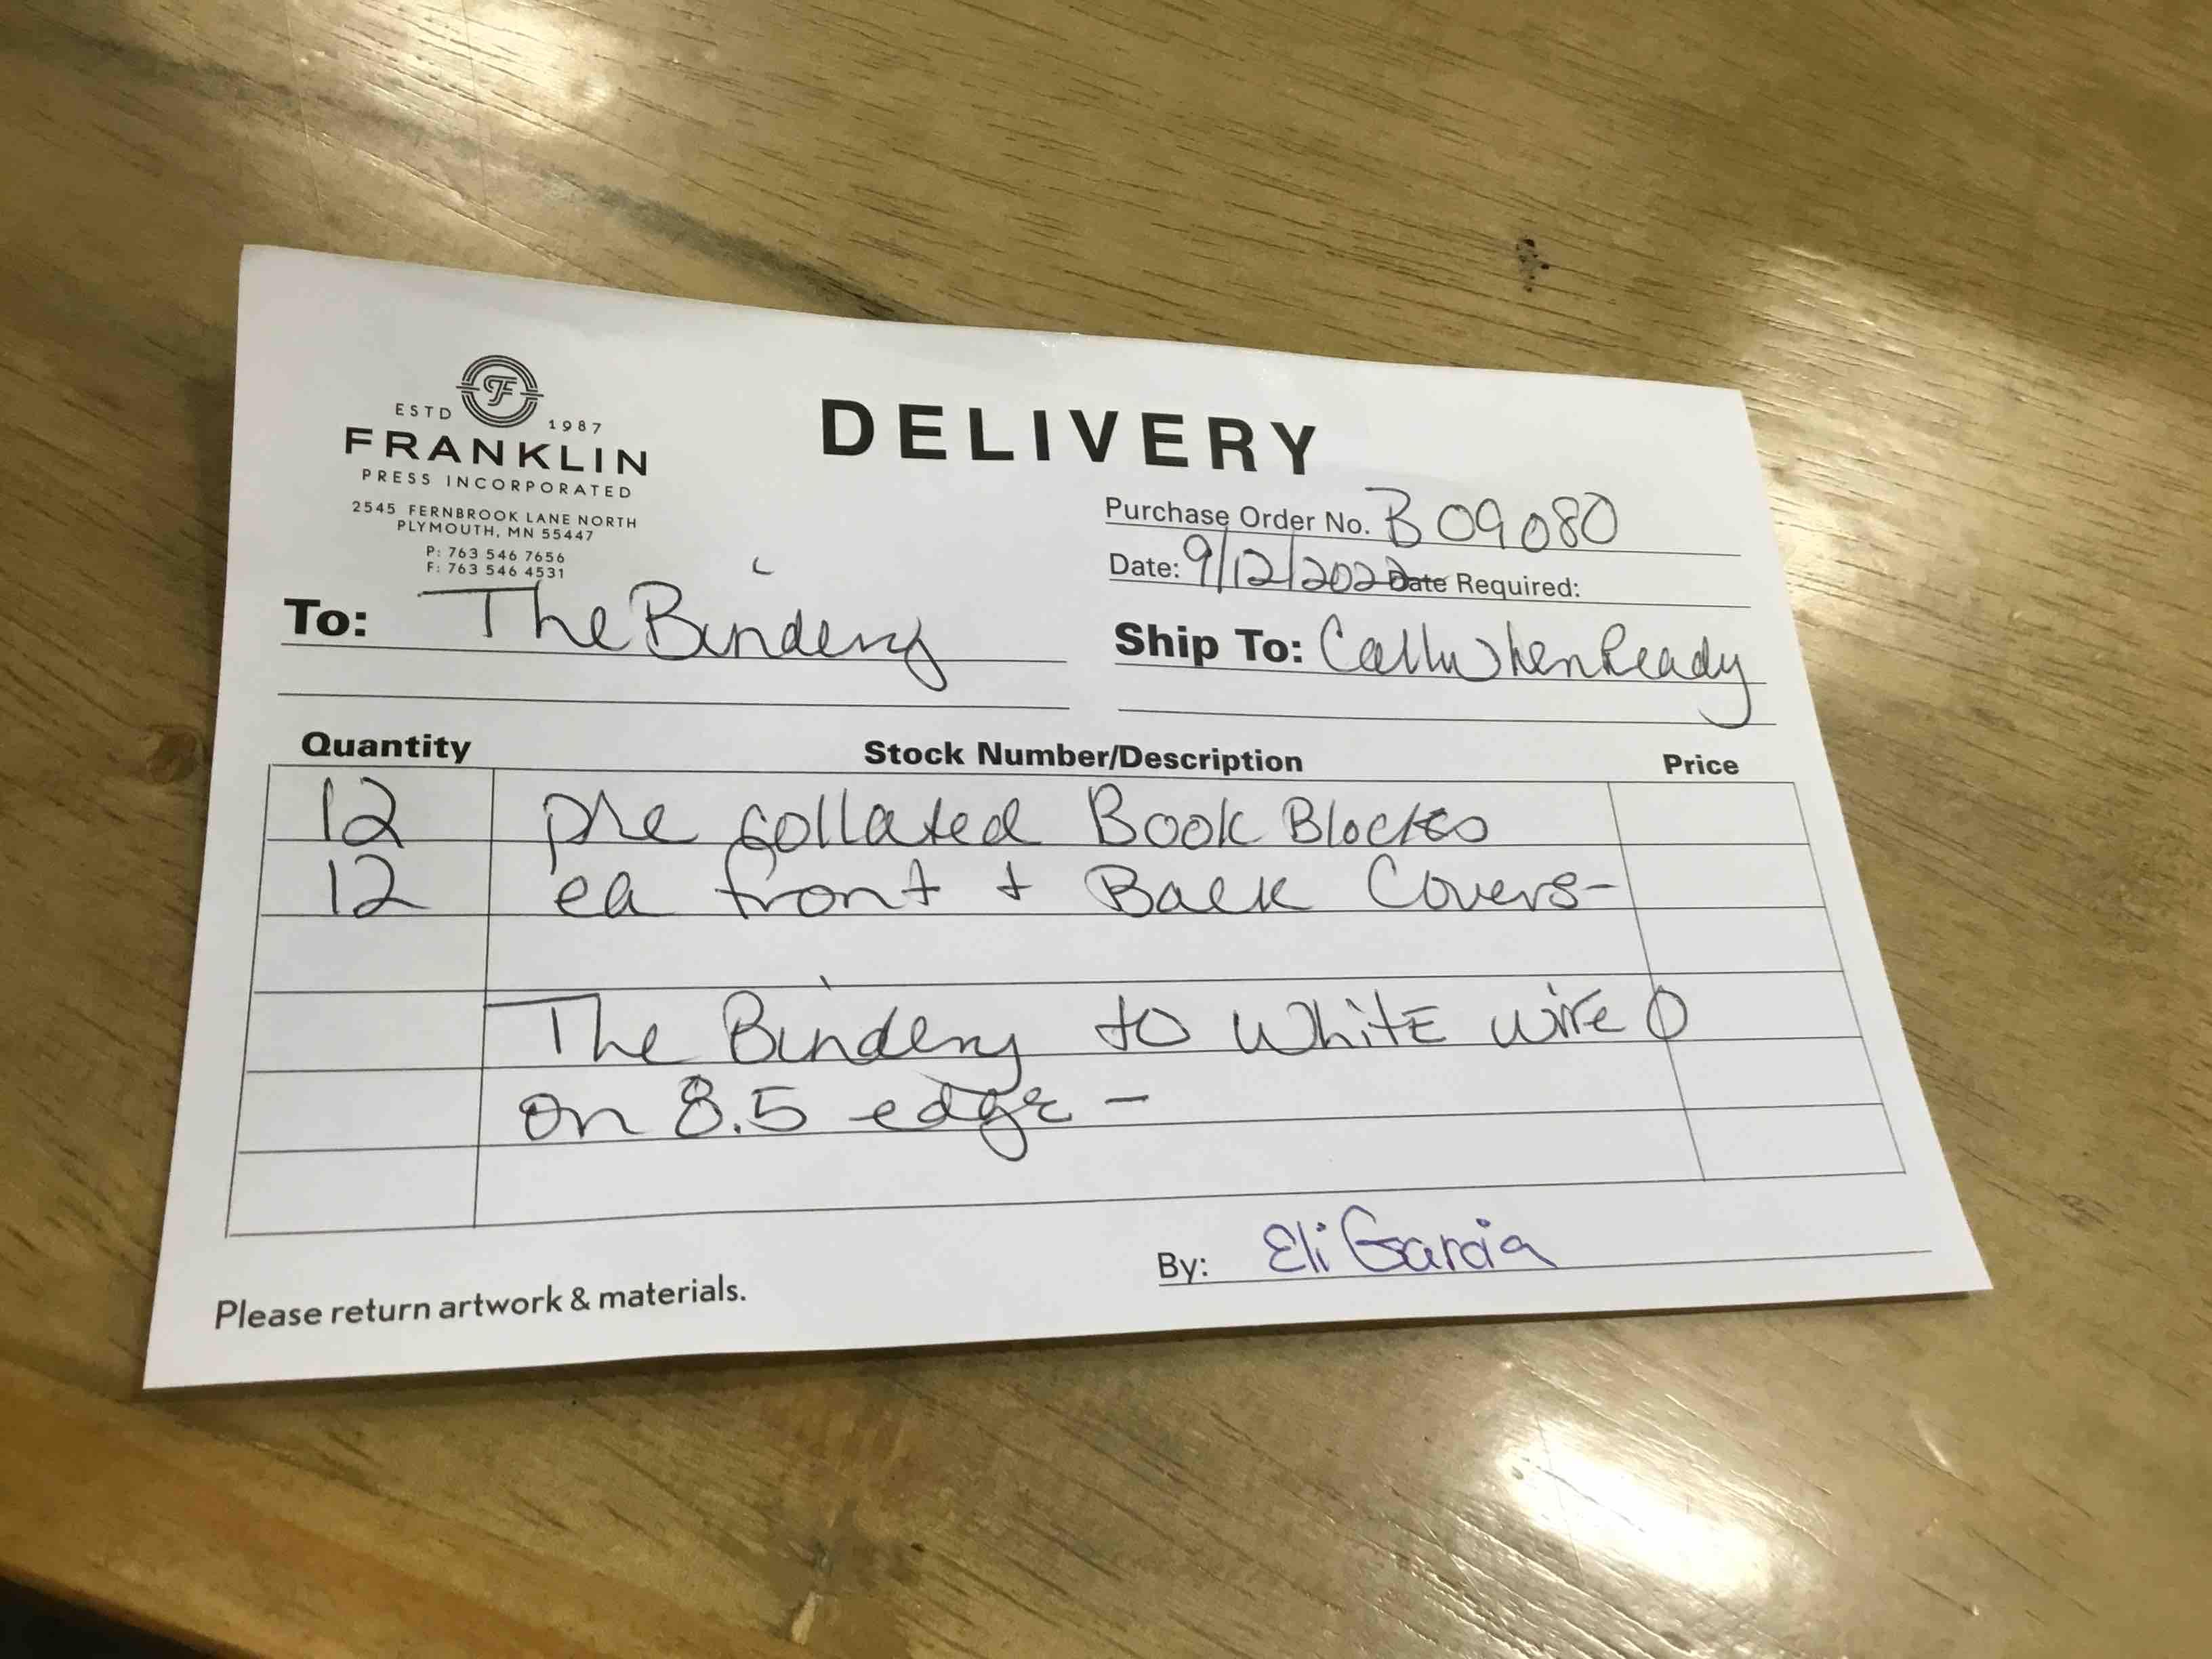 ESTD 1987
FRANKLIN
PRESS INCORPORATED
2545 FERNBROOK LANE NORTH
PLYMOUTH, MN 55447
P: 763 546 7656
F: 763 546 4531
DELIVERY
Purchase Order No. B09080
Date: 9/12/2022 Date Required:
To: The Bindery
Ship To: Call When Ready
Quantity Stock Number/Description Price
12 pre collated Book Blocks
12 ea front + Back Covers-
The Bindery to WhitE wire O
on 8.5 edge -
By: Eli Garcia
Please return artwork & materials.